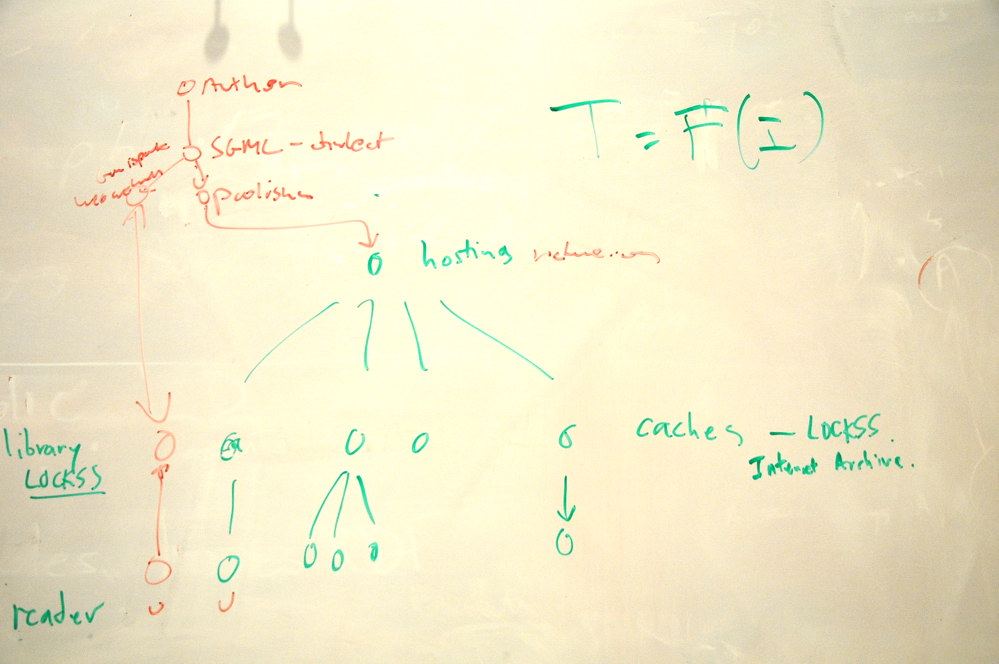 Author
T = F(I)
SGML - dialect
publisher
hosting
library
LOCKSS
caches - LOCKSS.
Internet Archive.
reader